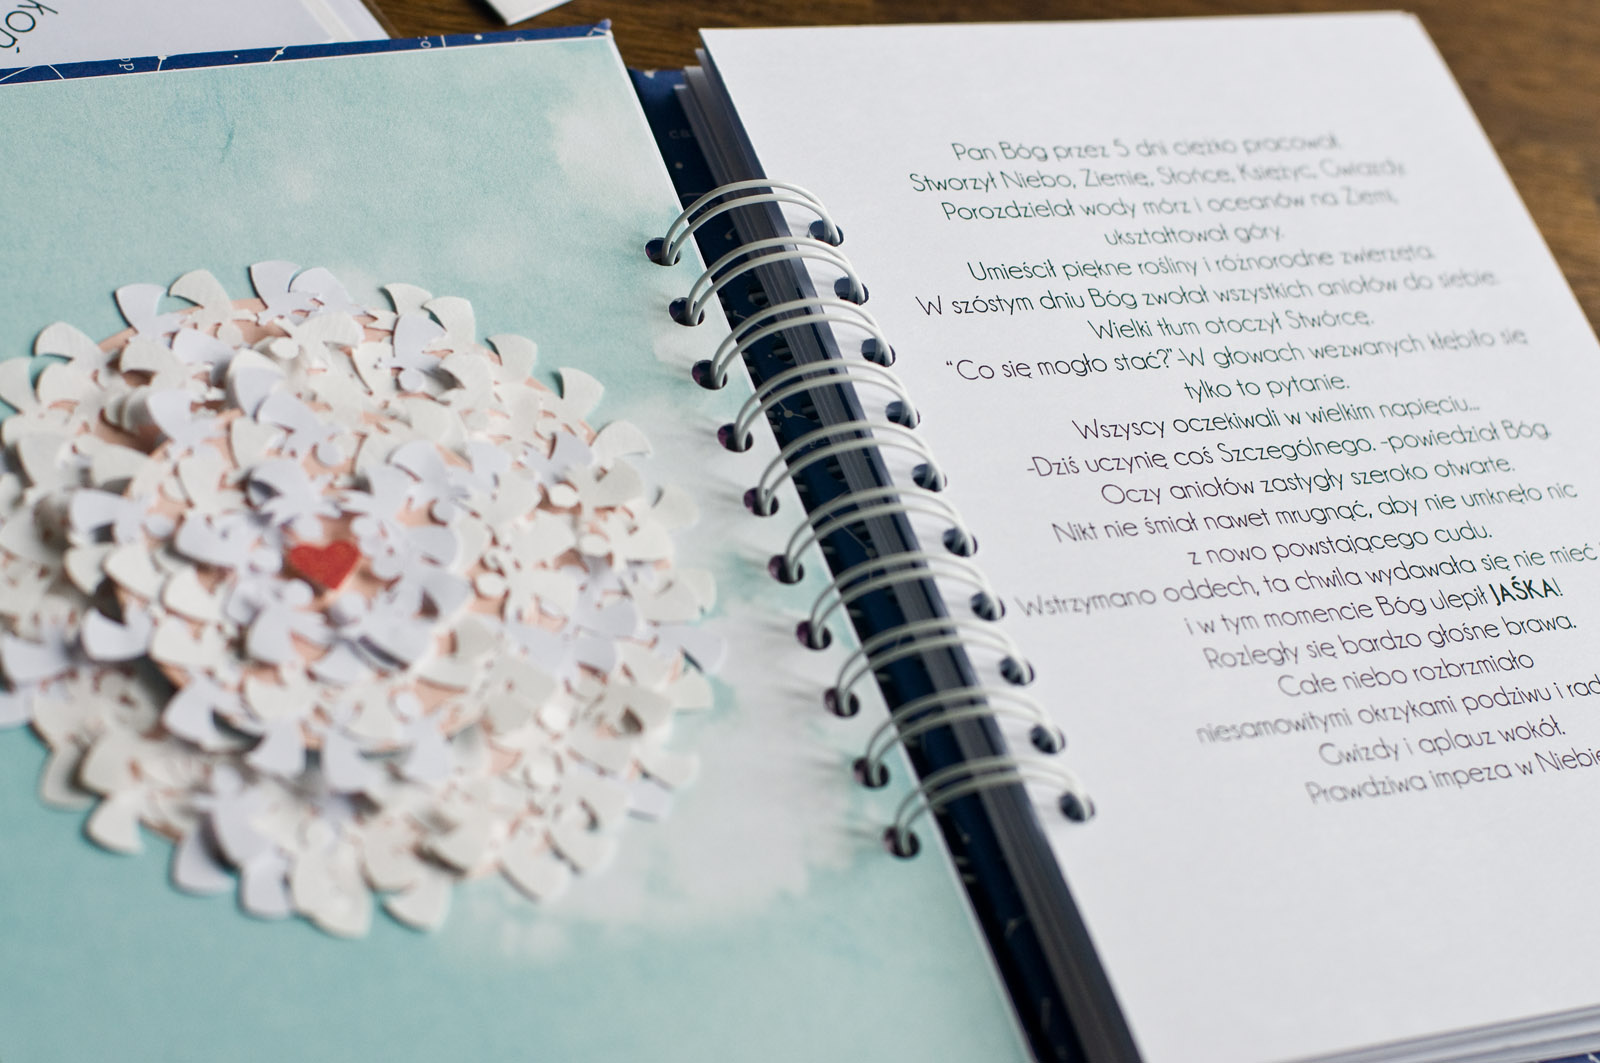 koń
Pan Bóg przez 5 dni ciężko pracował.
Stworzył Niebo, Ziemię, Słońce, Księżyc, Gwiazdy.
Porozdzielał wody mórz i oceanów na Ziemi,
ukształtował góry.
Umieścił piękne rośliny i różnorodne zwierzęta.
W szóstym dniu Bóg zwołał wszystkich aniołów do siebie.
Wielki tłum otoczył Stwórcę.
"Co się mogło stać?"-W głowach wezwanych kłębiło się
tylko to pytanie.
Wszyscy oczekiwali w wielkim napięciu...
-Dziś uczynię coś Szczególnego. -powiedział Bóg.
Oczy aniołów zastygły szeroko otwarte.
Nikt nie śmiał nawet mrugnąć, aby nie umknęło nic
z nowo powstającego cudu.
Wstrzymano oddech, ta chwila wydawała się nie mieć
i w tym momencie Bóg ulepił JAŚKA!
Rozległy się bardzo głośne brawa.
Całe niebo rozbrzmiało
niesamowitymi okrzykami podziwu i rad
Gwizdy i aplauz wokół.
Prawdziwa impeza w Niebie